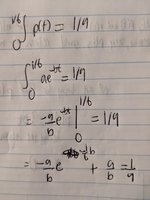 ∫₀^{1/6} p(t) = 1/9
∫₀^{1/6} ae^{-bt} = 1/9
= -a/b e^{-bt} |₀^{1/6} = 1/9
= -a/b e^{-1/6 b} + a/b = 1/9